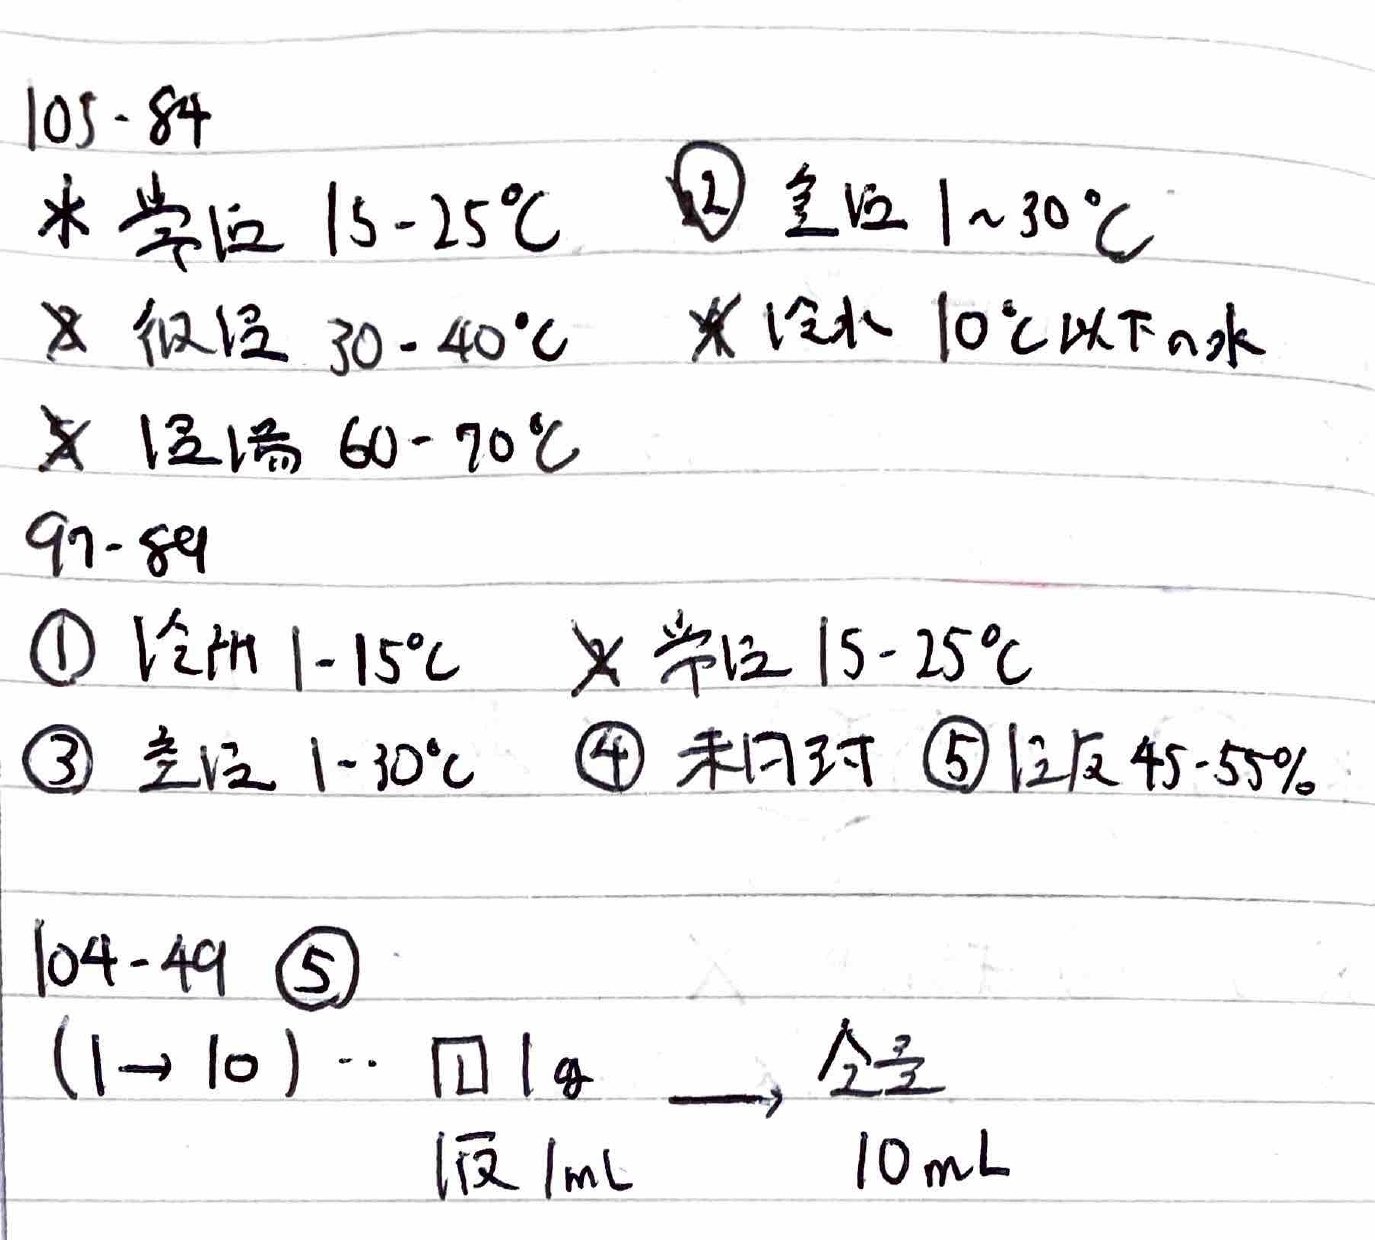 105-84
※ 常温 15-25℃ ② 室温 1~30℃
微温 30-40℃ 冷水 10℃以下の水
温湯 60-70℃
97-84
① 冷所 1-15℃ 常温 15-25℃
③ 室温 1-30℃ ④ 未開封 ⑤ 45-55%
104-49 ⑤
(1→10)‥ 固 1g → 全量
液 1mL 10mL